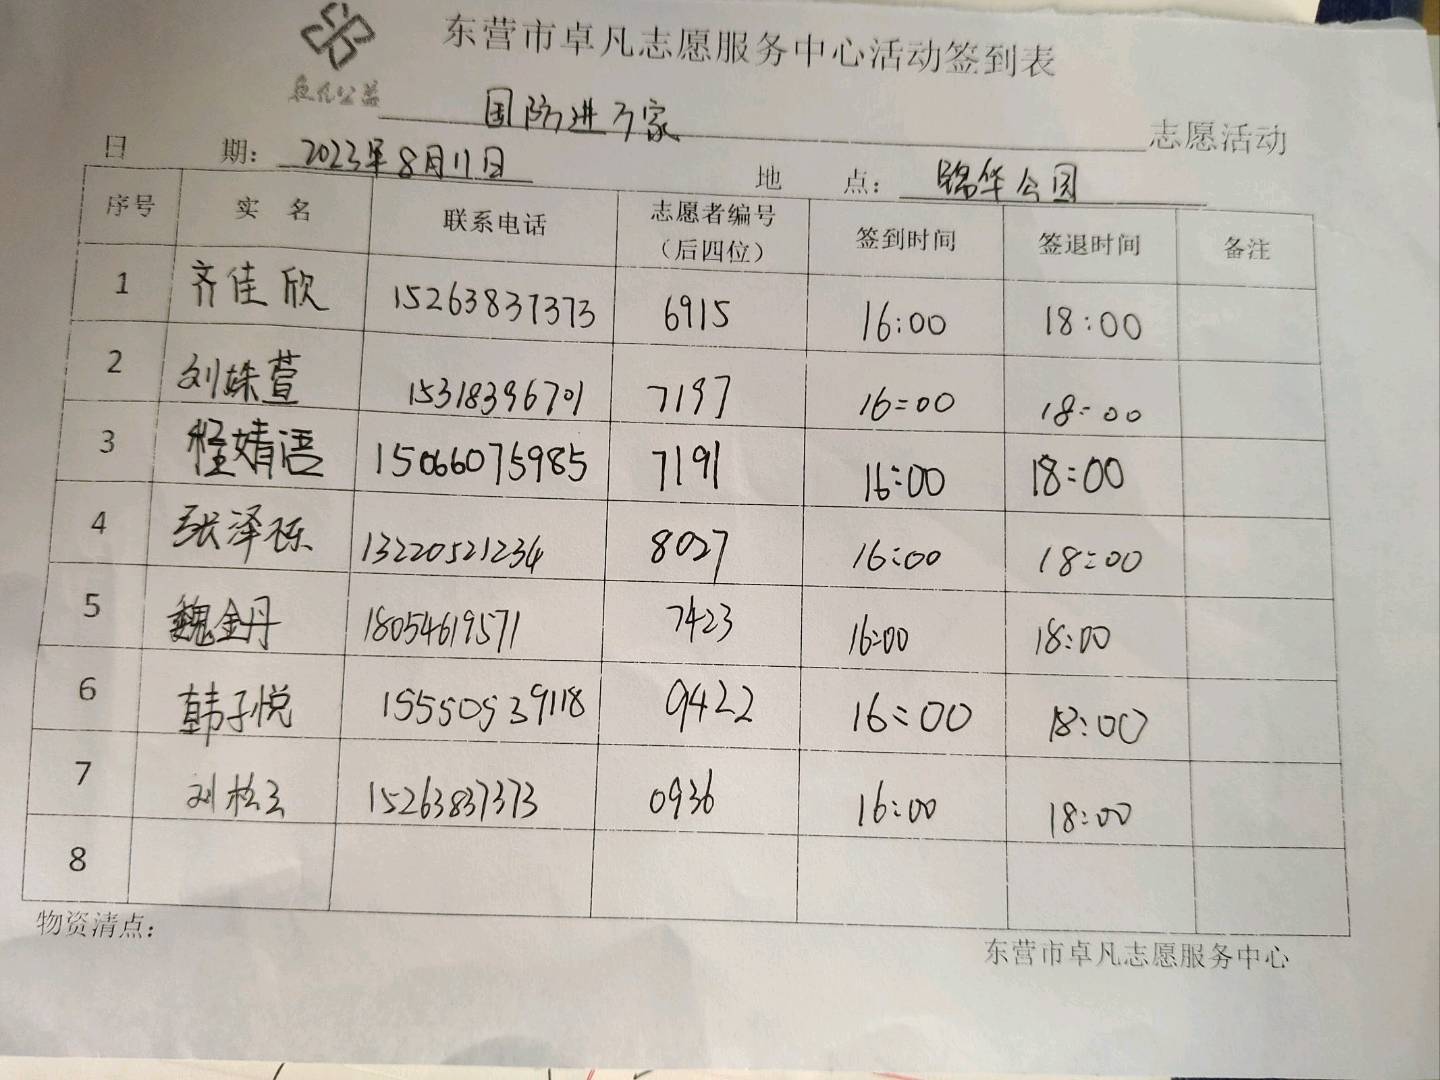 东营市卓凡志愿服务中心活动签到表
卓凡公益 国防进万家 志愿活动
日 期: 2023年8月11日 地 点: 锦华公园
序号 实 名 联系电话 志愿者编号 (后四位) 签到时间 签退时间 备注
1 齐佳欣 15263837373 6915 16:00 18:00
2 刘姝萱 15318396701 7197 16:00 18:00
3 程婧语 15066075985 7191 16:00 18:00
4 张泽栎 13220521234 8027 16:00 18:00
5 魏金丹 18054619571 7423 16:00 18:00
6 韩子悦 15550539118 9422 16:00 18:00
7 刘松云 15263837373 0936 16:00 18:00
8
物资清点:
东营市卓凡志愿服务中心